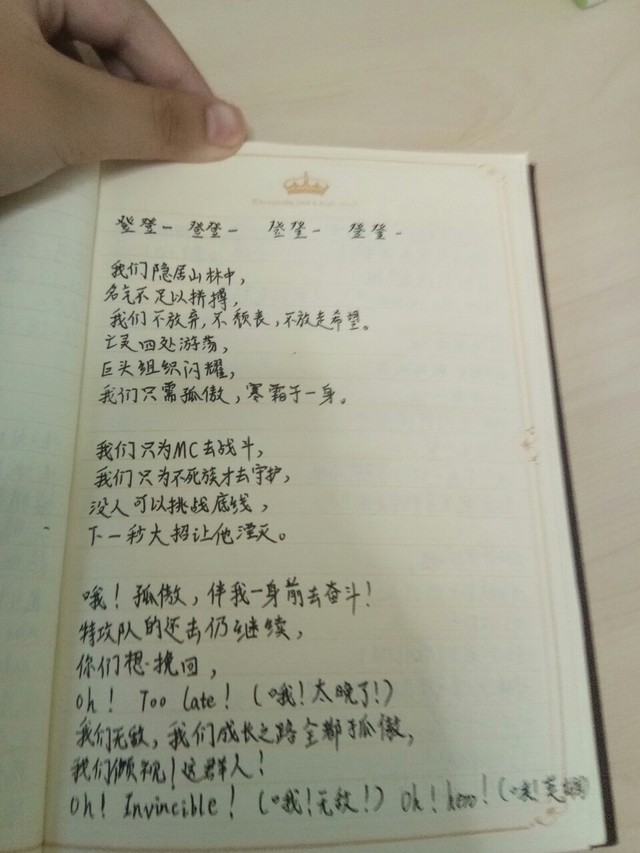 登登— 登登— 登登— 登登—
我们隐居山林中,
名气不足以拼搏,
我们不放弃,不颓丧,不放走希望。
亡灵四处游荡,
巨头组织闪耀,
我们只需孤傲,寒霜于一身。
我们只为MC去战斗,
我们只为不死族才去守护,
没人可以挑战底线,
下一秒大招让他湮灭。
哦!孤傲,伴我一身前去奋斗!
特攻队的还击仍在继续,
你们想挽回,
Oh! Too late! (哦!太晚了!)
我们无敌,我们成长之路全都孤傲,
我们倾视!这群人!
Oh! Invincible! (哦!无敌!) Oh! hero! (哦!英雄)